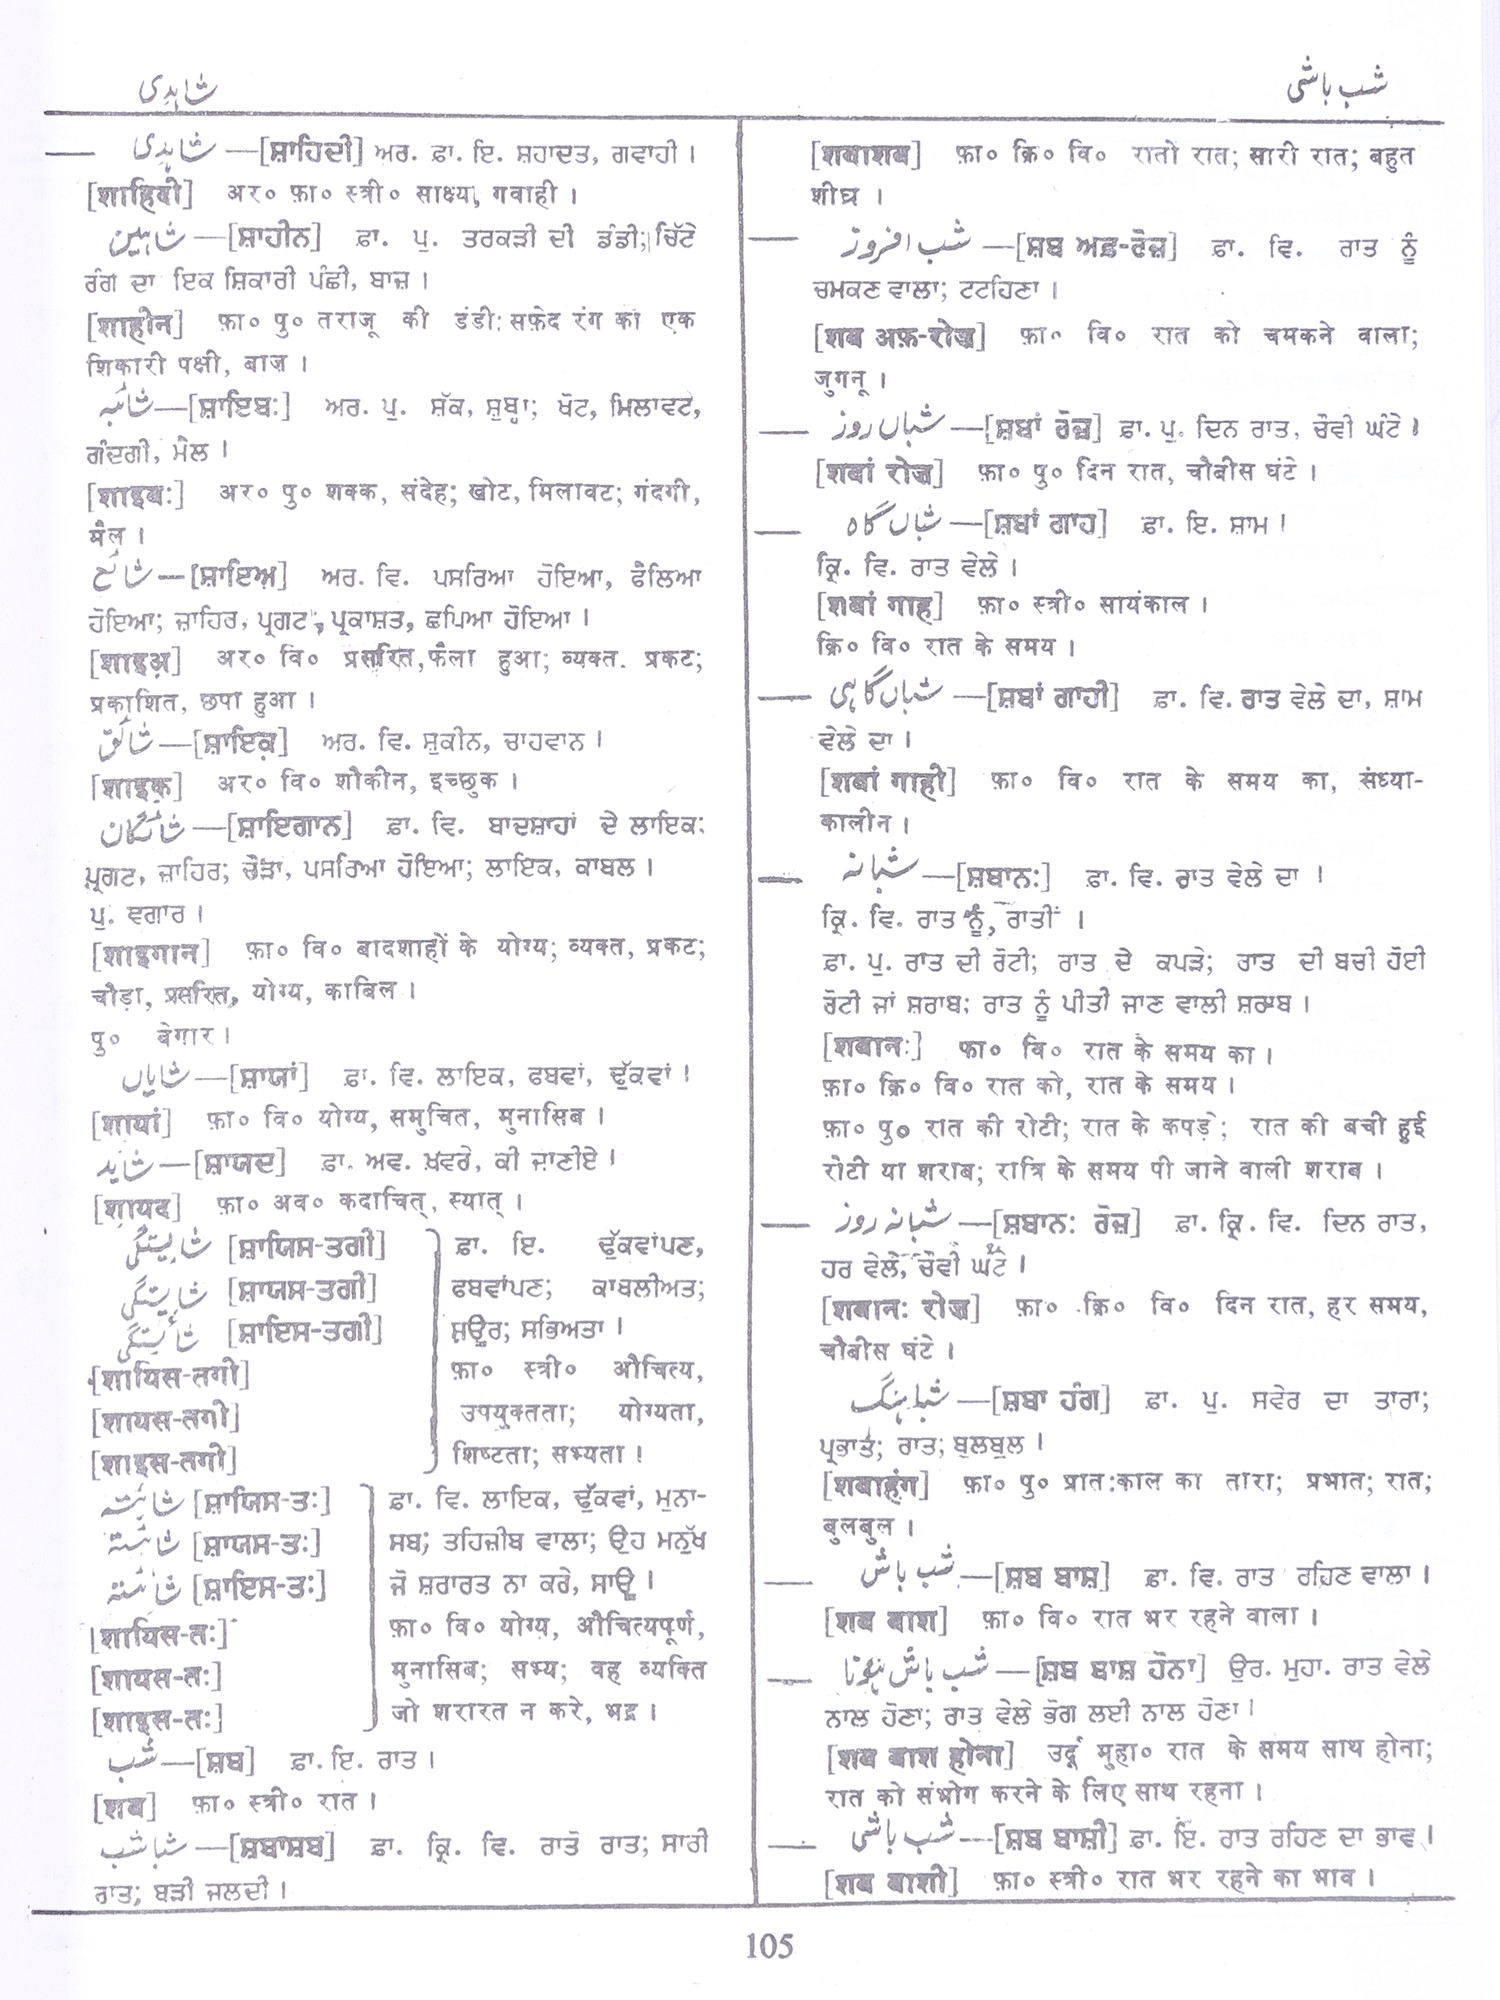 شاہدی
شب باشی
شاہدی —[ਸ਼ਾਹਿਦੀ] ਅਰ. ਫ਼ਾ. ਇ. ਸ਼ਹਾਦਤ, ਗਵਾਹੀ ।
[शाहिदी] अर० फ़ा० स्त्री० साक्ष्य, गवाही ।
شاہین —[ਸ਼ਾਹੀਨ] ਫ਼ਾ. ਪੁ. ਤਰਕੜੀ ਦੀ ਡੰਡੀ; ਚਿੱਟੇ
ਰੰਗ ਦਾ ਇਕ ਸ਼ਿਕਾਰੀ ਪੰਛੀ, ਬਾਜ਼ ।
[शाहीन] फ़ा० पु० तराजू की डंडी; सफ़ेद रंग का एक
शिकारी पक्षी, बाज़ ।
شائبہ —[ਸ਼ਾਇਬ:] ਅਰ. ਪੁ. ਸ਼ੱਕ, ਸ਼ੁਬ੍ਹਾ; ਖੋਟ, ਮਿਲਾਵਟ,
ਗੰਦਗੀ, ਮੈਲ ।
[शाइब:] अर० पु० शक्क, संदेह; खोट, मिलावट; गंदगी,
मैल ।
شائع —[ਸ਼ਾਇਅ਼] ਅਰ. ਵਿ. ਪਸਰਿਆ ਹੋਇਆ, ਫੈਲਿਆ
ਹੋਇਆ; ਜ਼ਾਹਿਰ, ਪ੍ਰਗਟ, ਪ੍ਰਕਾਸ਼ਤ, ਛਪਿਆ ਹੋਇਆ ।
[शाइअ़] अर० वि० प्रसरित, फैला हुआ; व्यक्त. प्रकट;
प्रकाशित, छपा हुआ ।
شائق —[ਸ਼ਾਇਕ਼] ਅਰ. ਵਿ. ਸ਼ੁਕੀਨ, ਚਾਹਵਾਨ ।
[शाइक़] अर० वि० शौकीन, इच्छुक ।
شائگان —[ਸ਼ਾਇਗਾਨ] ਫ਼ਾ. ਵਿ. ਬਾਦਸ਼ਾਹਾਂ ਦੇ ਲਾਇਕ:
ਪ੍ਰਗਟ, ਜ਼ਾਹਿਰ; ਚੌੜਾ, ਪਸਰਿਆ ਹੋਇਆ; ਲਾਇਕ, ਕਾਬਲ ।
ਪੁ. ਵਗਾਰ ।
[शाइगान] फ़ा० वि० बादशाहों के योग्य; व्यक्त, प्रकट;
चौड़ा, प्रसरित, योग्य, काबिल ।
पु० बेगार ।
شایاں —[ਸ਼ਾਯਾਂ] ਫ਼ਾ. ਵਿ. ਲਾਇਕ, ਫਬਵਾਂ, ਢੁੱਕਵਾਂ ।
[शायां] फ़ा० वि० योग्य, समुचित, मुनासिब ।
شاید —[ਸ਼ਾਯਦ] ਫ਼ਾ. ਅਵ. ਖ਼ਵਰੇ, ਕੀ ਜਾਣੀਏ ।
[शायद] फ़ा० अव० कदाचित्, स्यात् ।
شایستگی [ਸ਼ਾਯਿਸ-ਤਗੀ]
شایستگی [ਸ਼ਾਯਸ-ਤਗੀ]
شائستگی [ਸ਼ਾਇਸ-ਤਗੀ]
[शायिस-तगी]
[शायस-तगी]
[शाइस-तगी]
ਫ਼ਾ. ਇ. ਢੁੱਕਵਾਂਪਣ,
ਫਬਵਾਂਪਣ; ਕਾਬਲੀਅਤ;
ਸ਼ਊਰ; ਸਭਿਅਤਾ ।
फ़ा० स्त्री० औचित्य,
उपयुक्तता; योग्यता,
शिष्टता; सभ्यता ।
شائستہ [ਸ਼ਾਯਿਸ-ਤ:]
شائستہ [ਸ਼ਾਯਸ-ਤ:]
شائستہ [ਸ਼ਾਇਸ-ਤ:]
[शायिस-त:]
[शायस-त:]
[शाइस-त:]
ਫ਼ਾ. ਵਿ. ਲਾਇਕ, ਢੁੱਕਵਾਂ, ਮੁਨਾ-
ਸਬ; ਤਹਿਜ਼ੀਬ ਵਾਲਾ; ਉਹ ਮਨੁੱਖ
ਜੋ ਸ਼ਰਾਰਤ ਨਾ ਕਰੇ, ਸਾਊ ।
फ़ा० वि० योग्य, औचित्यपूर्ण,
मुनासिब; सभ्य; वह व्यक्ति
जो शरारत न करे, भद्र ।
شب —[ਸ਼ਬ] ਫ਼ਾ. ਇ. ਰਾਤ ।
[शब] फ़ा० स्त्री० रात ।
شباشب —[ਸ਼ਬਾਸ਼ਬ] ਫ਼ਾ. ਕ੍ਰਿ. ਵਿ. ਰਾਤੋ ਰਾਤ; ਸਾਰੀ
ਰਾਤ; ਬੜੀ ਜਲਦੀ ।
[शबाशब] फ़ा० क्रि० वि० रातों रात; सारी रात; बहुत
शीघ्र ।
شب افروز —[ਸ਼ਬ ਅਫ਼-ਰੋਜ਼] ਫ਼ਾ. ਵਿ. ਰਾਤ ਨੂੰ
ਚਮਕਣ ਵਾਲਾ; ਟਟਹਿਣਾ ।
[शब अफ़-रोज़] फ़ा० वि० रात को चमकने वाला;
जुगनू ।
شباں روز —[ਸ਼ਬਾਂ ਰੋਜ਼] ਫ਼ਾ. ਪੁ. ਦਿਨ ਰਾਤ, ਚੌਵੀ ਘੰਟੇ ।
[शबां रोज़] फ़ा० पु० दिन रात, चौबीस घंटे ।
شباں گاہ —[ਸ਼ਬਾਂ ਗਾਹ] ਫ਼ਾ. ਇ. ਸ਼ਾਮ ।
ਕ੍ਰਿ. ਵਿ. ਰਾਤ ਵੇਲੇ ।
[शबां गाह] फ़ा० स्त्री० सायंकाल ।
क्रि० वि० रात के समय ।
شباں گاہی —[ਸ਼ਬਾਂ ਗਾਹੀ] ਫ਼ਾ. ਵਿ. ਰਾਤ ਵੇਲੇ ਦਾ, ਸ਼ਾਮ
ਵੇਲੇ ਦਾ ।
[शबां गाही] फ़ा० वि० रात के समय का, संध्या-
कालीन ।
شبانہ —[ਸ਼ਬਾਨ:] ਫ਼ਾ. ਵਿ. ਰਾਤ ਵੇਲੇ ਦਾ ।
ਕ੍ਰਿ. ਵਿ. ਰਾਤ ਨੂੰ, ਰਾਤੀਂ ।
ਫ਼ਾ. ਪੁ. ਰਾਤ ਦੀ ਰੋਟੀ; ਰਾਤ ਦੇ ਕਪੜੇ; ਰਾਤ ਦੀ ਬਚੀ ਹੋਈ
ਰੋਟੀ ਜਾਂ ਸ਼ਰਾਬ; ਰਾਤ ਨੂੰ ਪੀਤੀ ਜਾਣ ਵਾਲੀ ਸ਼ਰਾਬ ।
[शबान:] फा० वि० रात के समय का ।
फ़ा० क्रि० वि० रात को, रात के समय ।
फ़ा० पु० रात की रोटी; रात के कपड़े; रात की बची हुई
रोटी या शराब; रात्रि के समय पी जाने वाली शराब ।
شبانہ روز —[ਸ਼ਬਾਨ: ਰੋਜ਼] ਫ਼ਾ. ਕ੍ਰਿ. ਵਿ. ਦਿਨ ਰਾਤ,
ਹਰ ਵੇਲੇ, ਚੌਵੀ ਘੰਟੇ ।
[शबान: रोज़] फ़ा० क्रि० वि० दिन रात, हर समय,
चौबीस घंटे ।
شباہنگ —[ਸ਼ਬਾ ਹੰਗ] ਫ਼ਾ. ਪੁ. ਸਵੇਰ ਦਾ ਤਾਰਾ;
ਪ੍ਰਭਾਤ; ਰਾਤ; ਬੁਲਬੁਲ ।
[शबाहंग] फ़ा० पु० प्रात:काल का तारा; प्रभात; रात;
बुलबुल ।
شب باش —[ਸ਼ਬ ਬਾਸ਼] ਫ਼ਾ. ਵਿ. ਰਾਤ ਰਹਿਣ ਵਾਲਾ ।
[शब बाश] फ़ा० वि० रात भर रहने वाला ।
شب باش ہونا —[ਸ਼ਬ ਬਾਸ਼ ਹੋਨਾ] ਉਰ. ਮੁਹਾ. ਰਾਤ ਵੇਲੇ
ਨਾਲ ਹੋਣਾ; ਰਾਤ ਵੇਲੇ ਭੋਗ ਲਈ ਨਾਲ ਹੋਣਾ ।
[शब बाश होना] उर्दू मुहा० रात के समय साथ होना;
रात को संभोग करने के लिए साथ रहना ।
شب باشی —[ਸ਼ਬ ਬਾਸ਼ੀ] ਫ਼ਾ. ਇ. ਰਾਤ ਰਹਿਣ ਦਾ ਭਾਵ ।
[शब बाशी] फ़ा० स्त्री० रात भर रहने का भाव ।
105